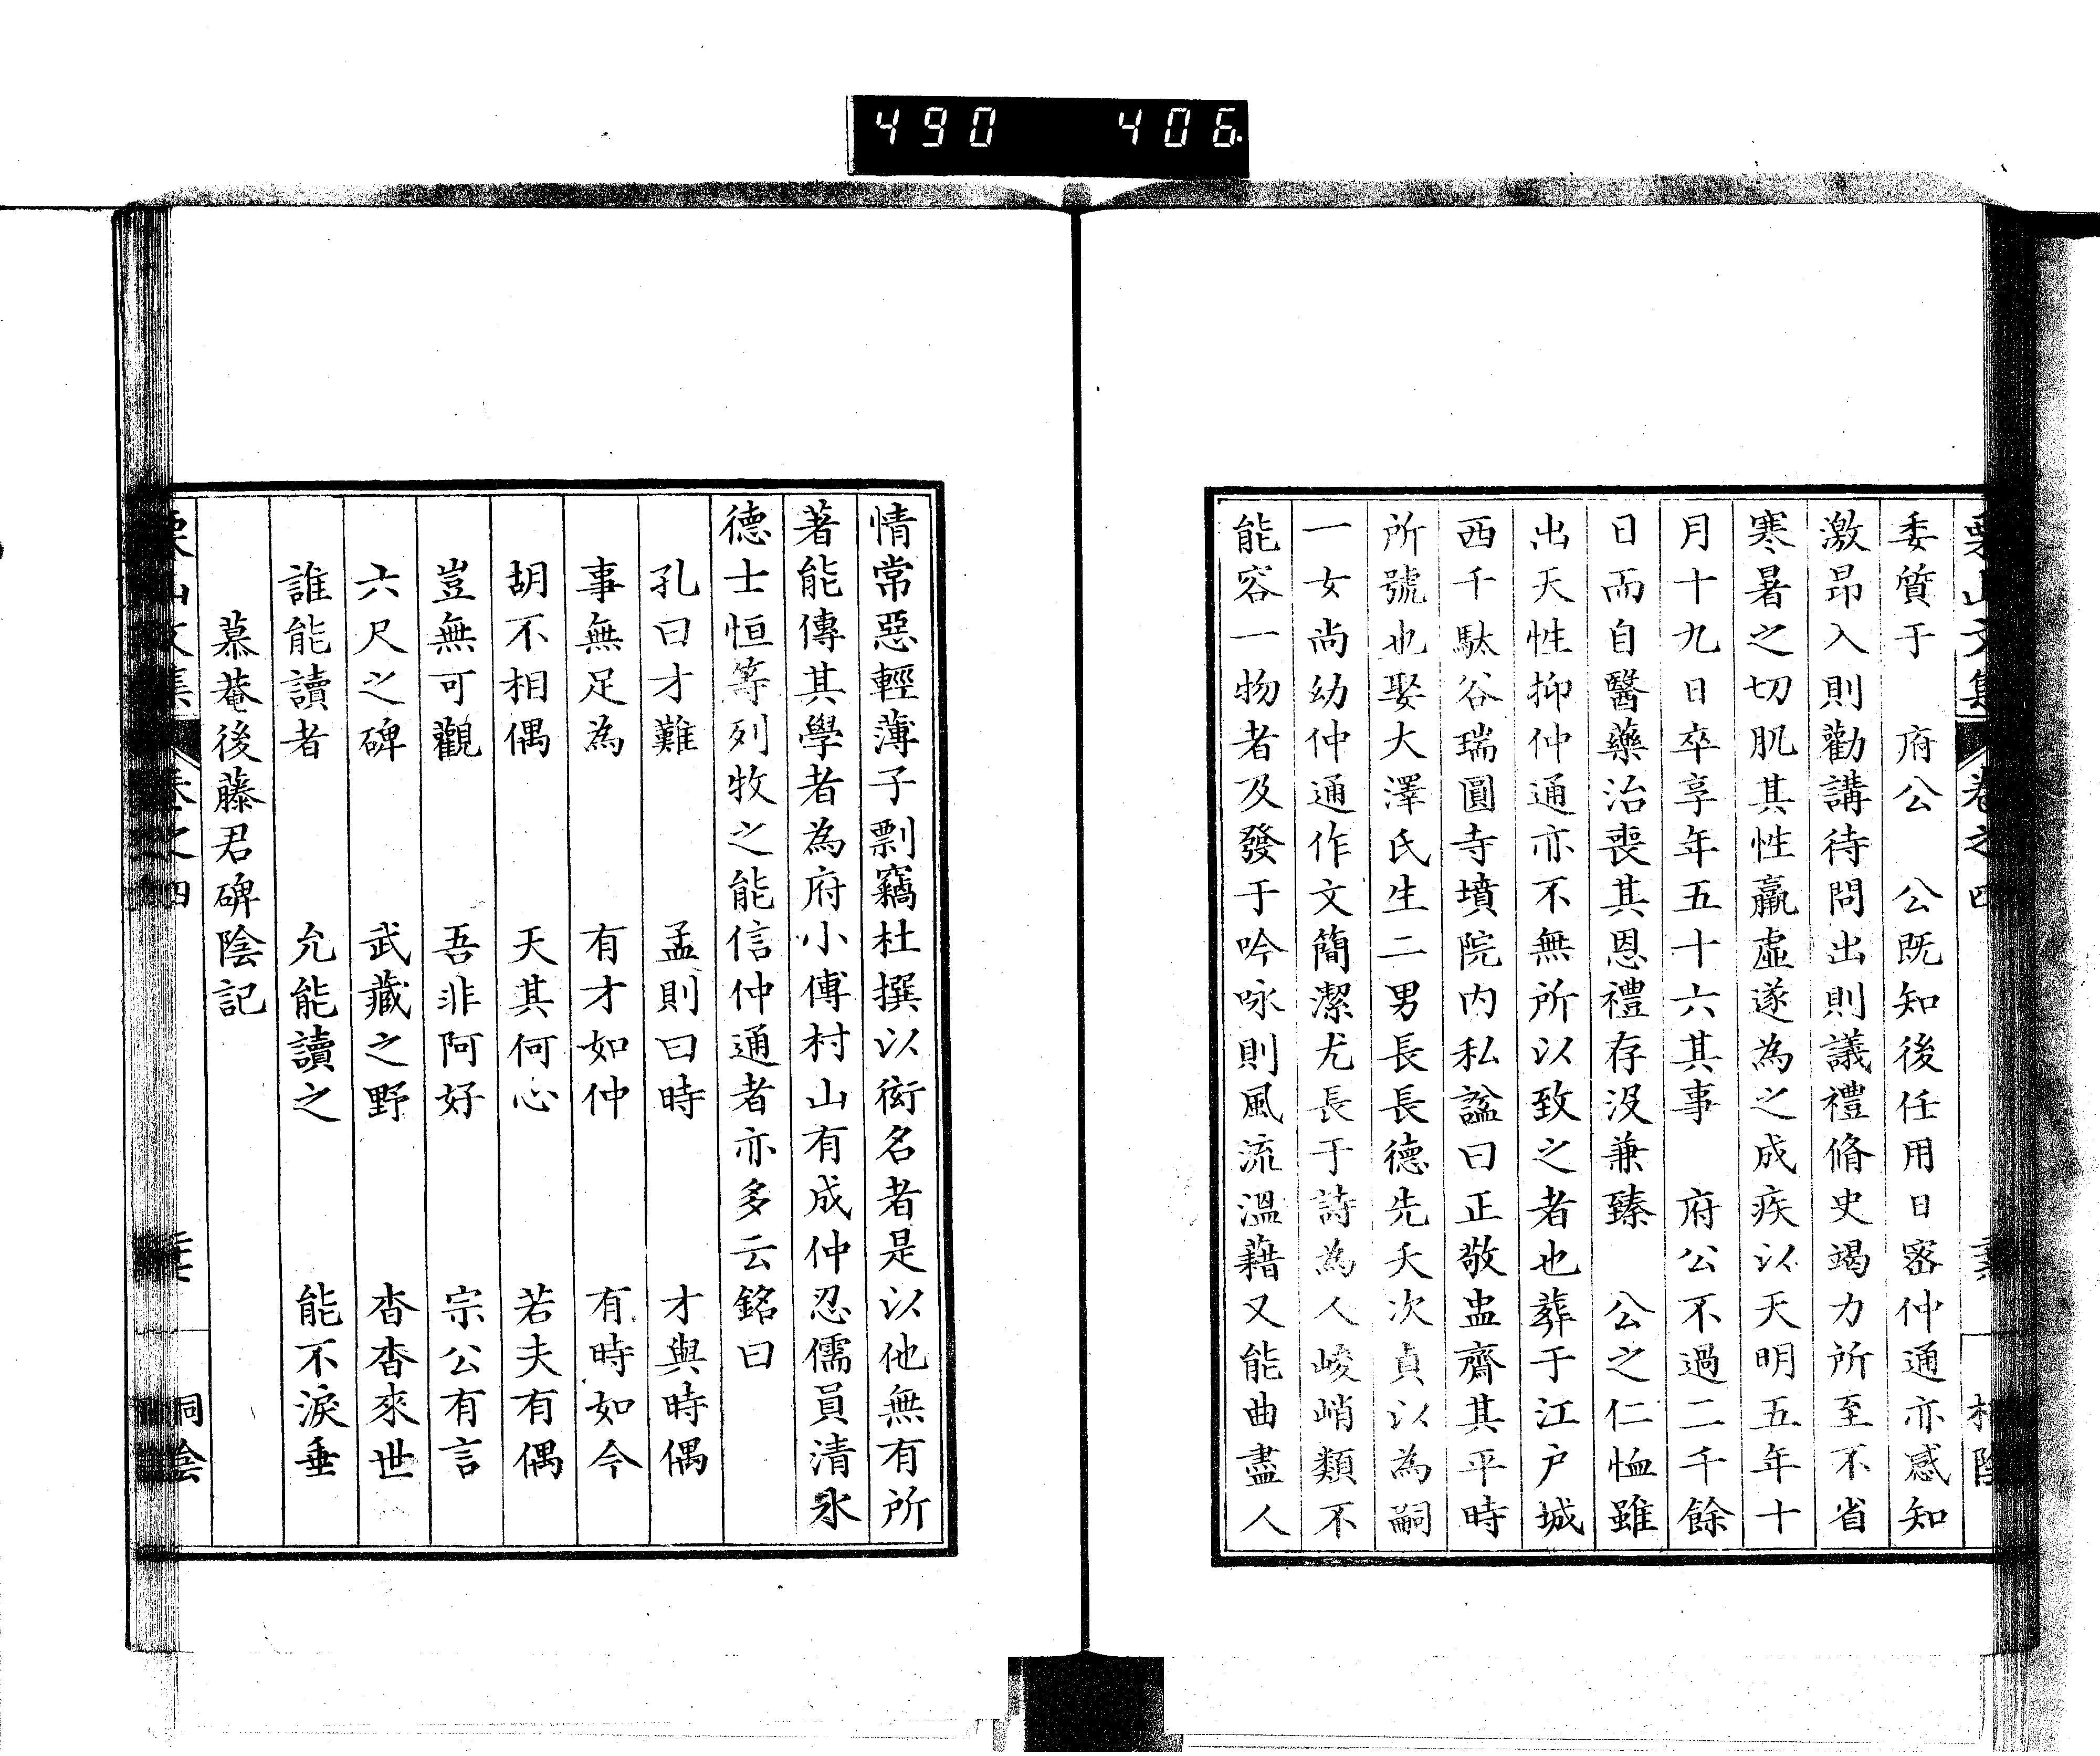 490 406
栗山文集 卷之四
委質于　府公　公既知後任用日密仲通亦感知
激昂入則勸講待問出則議禮脩史竭力所至不省
寒暑之切肌其性羸虛遂為之成疾以天明五年十
月十九日卒享年五十六其事　府公不過二千餘
日而自醫藥治喪其恩禮存沒兼臻　公之仁恤雖
出天性抑仲通亦不無所以致之者也葬于江戶城
西千駄谷瑞圓寺墳院內私諡曰正敬盅齋其平時
所號也娶大澤氏生二男長長德先夭次貞以為嗣
一女尚幼仲通作文簡潔尤長于詩為人峻峭類不
能容一物者及發于吟咏則風流溫藉又能曲盡人
情常惡輕薄子剽竊杜撰以衒名者是以他無有所
著能傳其學者為府小傅村山有成仲忍儒員清水
德士恒等列牧之能信仲通者亦多云銘曰
孔曰才難　孟則曰時　才與時偶
事無足為　有才如仲　有時如今
胡不相偶　天其何心　若夫有偶
豈無可觀　吾非阿好　宗公有言
六尺之碑　武藏之野　杳杳來世
誰能讀者　允能讀之　能不淚垂
慕菴後藤君碑陰記
栗山文集 卷之四